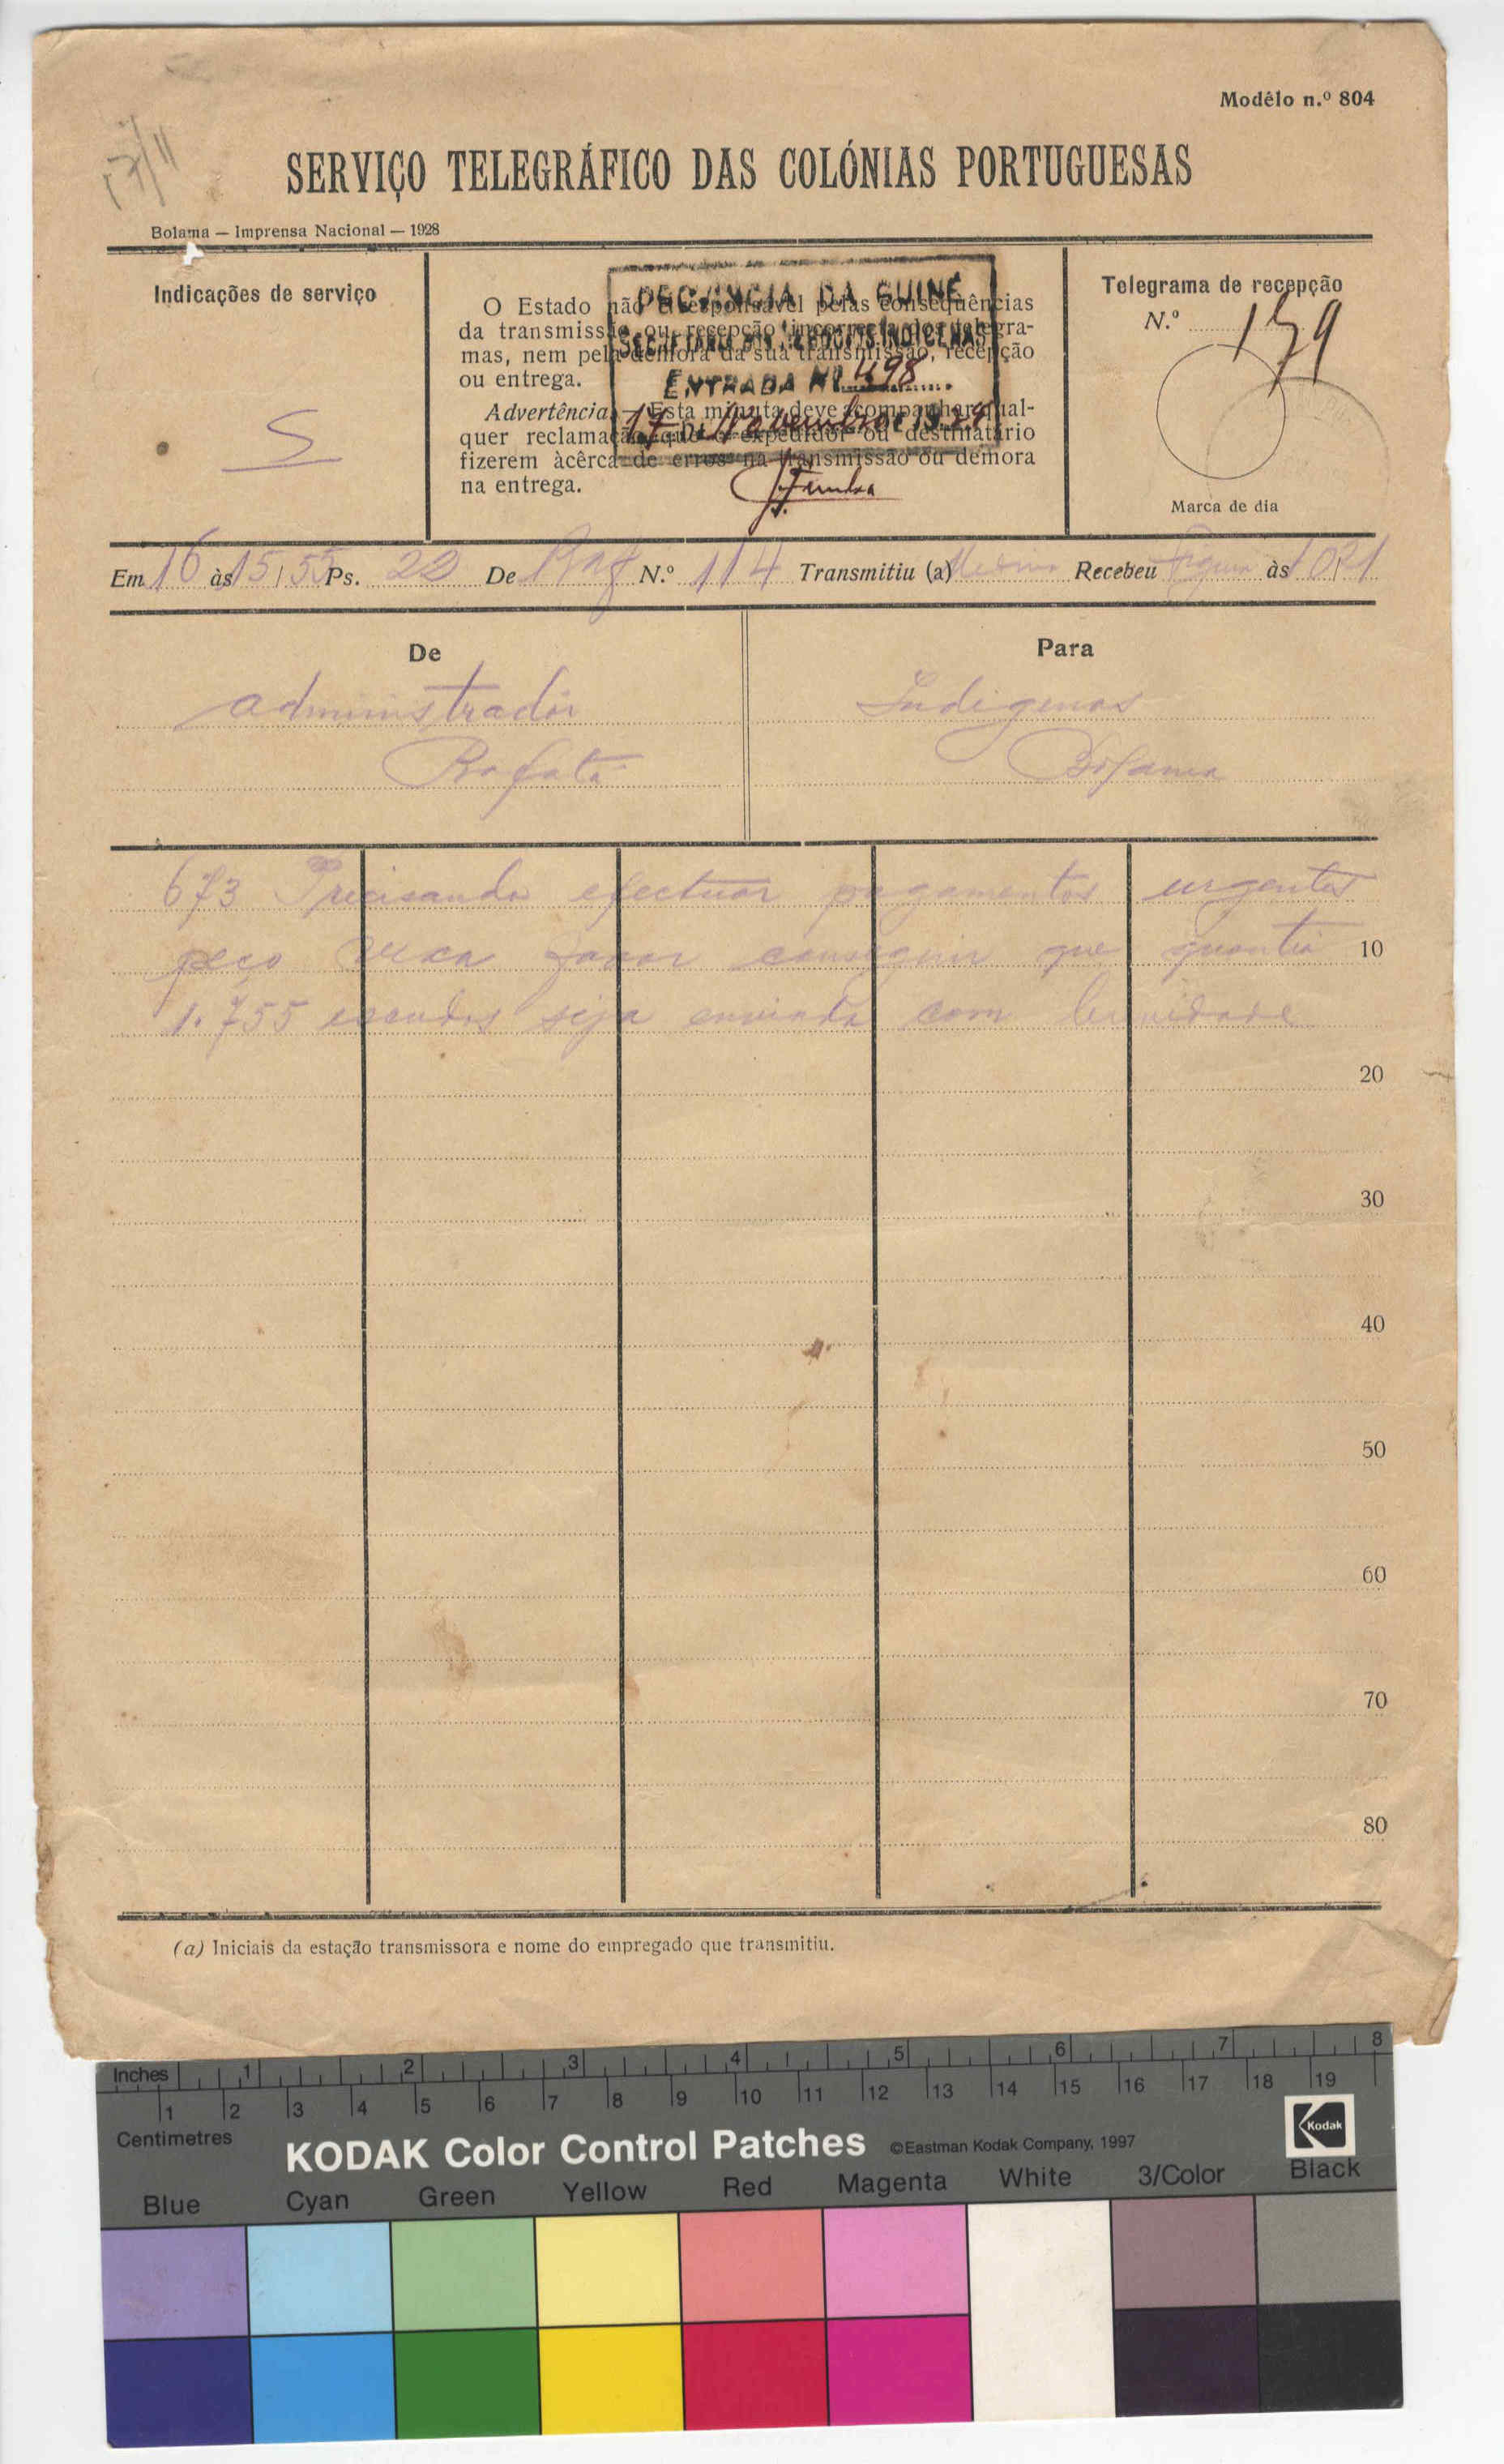 Modêlo n.º 804
17/11
SERVIÇO TELEGRÁFICO DAS COLÓNIAS PORTUGUESAS
Bolama — Imprensa Nacional — 1928
Indicações de serviço
S
O Estado não é responsável pelas consequências
da transmissão ou recepção incorrecta dos telegra-
mas, nem pela demora da sua transmissão, recepção
ou entrega.
Advertência — Esta minuta deve acompanhar qual-
quer reclamação que o expedidor ou destinatário
fizerem àcêrca de erros na transmissão ou demora
na entrega.
PROVINCIA DA GUINÉ
SECRETARIA DOS NEGOCIOS INDIGENAS
ENTRADA Nº 498
17 de Novembro de 1929
Telegrama de recepção
N.º 179
Marca de dia
Em 16 às 15,55 Ps. 22 De Baf N.º 114 Transmitiu (a) Recebeu às
De
administrador
Bafatá
Para
Indigenas
Bolama
673 Precisando efectuar pagamentos urgentes
peço favor conseguir que quantia 10
1.755 escudos seja enviada com brevidade
20
30
40
50
60
70
80
(a) Iniciais da estação transmissora e nome do empregado que transmitiu.
Inches 1 2 3 4 5 6 7 8
1 2 3 4 5 6 7 8 9 10 11 12 13 14 15 16 17 18 19
Centimetres
KODAK Color Control Patches ©Eastman Kodak Company, 1997 Kodak
Blue Cyan Green Yellow Red Magenta White 3/Color Black